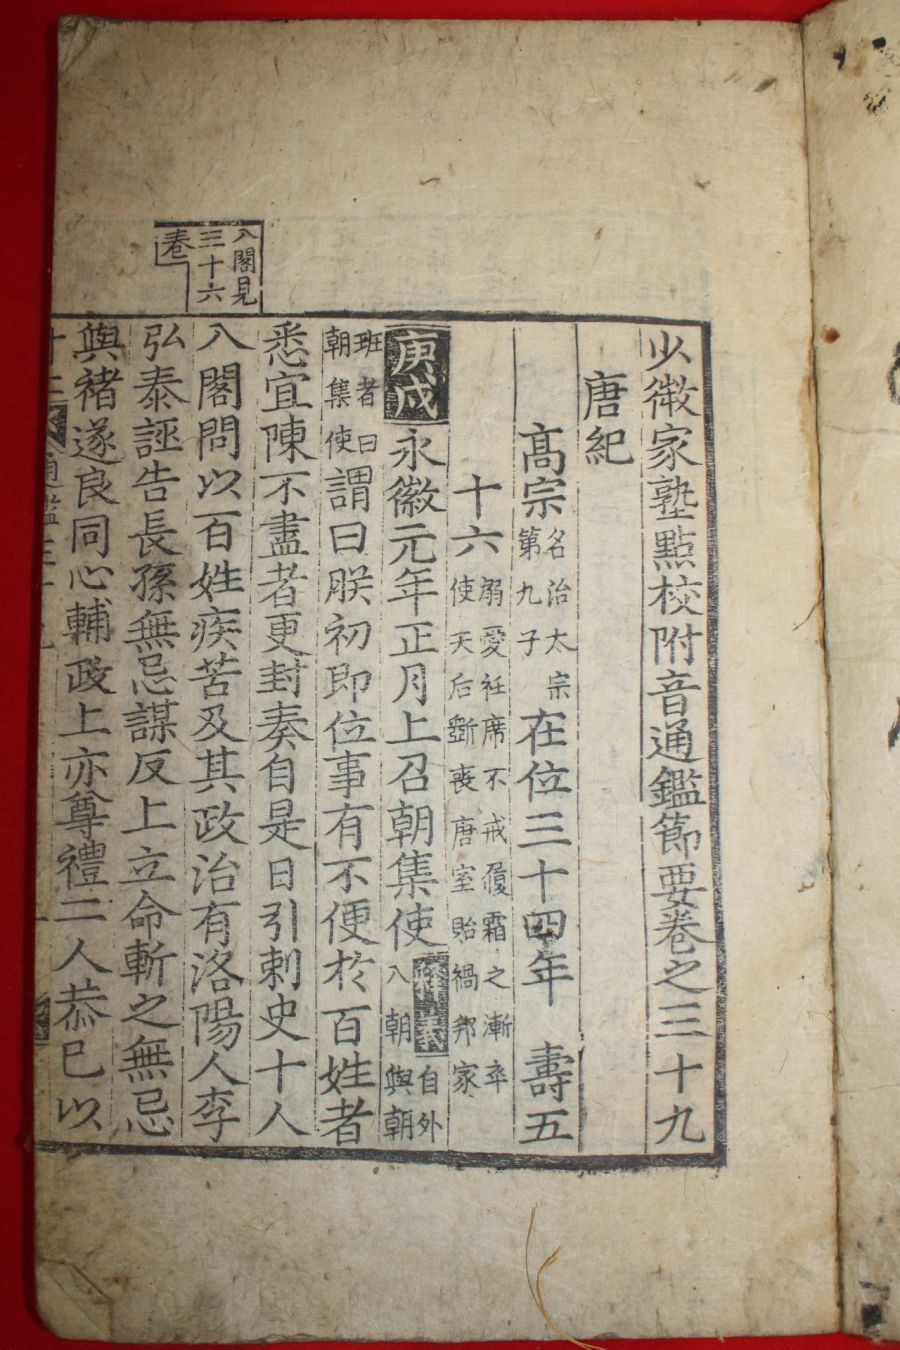 少微家塾點校附音通鑑節要卷之三十九
唐紀
高宗 名治太宗第九子 在位三十四年 壽五
十六 溺愛衽席不戒履霜之漸卒使天后斲喪唐室貽禍邦家
庚戌 永徽元年正月上召朝集使 釋義 自外入朝與朝
班者曰朝集使 謂曰朕初即位事有不便於百姓者
悉宜陳不盡者更封奏自是日引刺史十人
入閤問以百姓疾苦及其政治有洛陽人李
弘泰誣告長孫無忌謀反上立命斬之無忌
與褚遂良同心輔政上亦尊禮二人恭己以
入閤見
三十六
卷